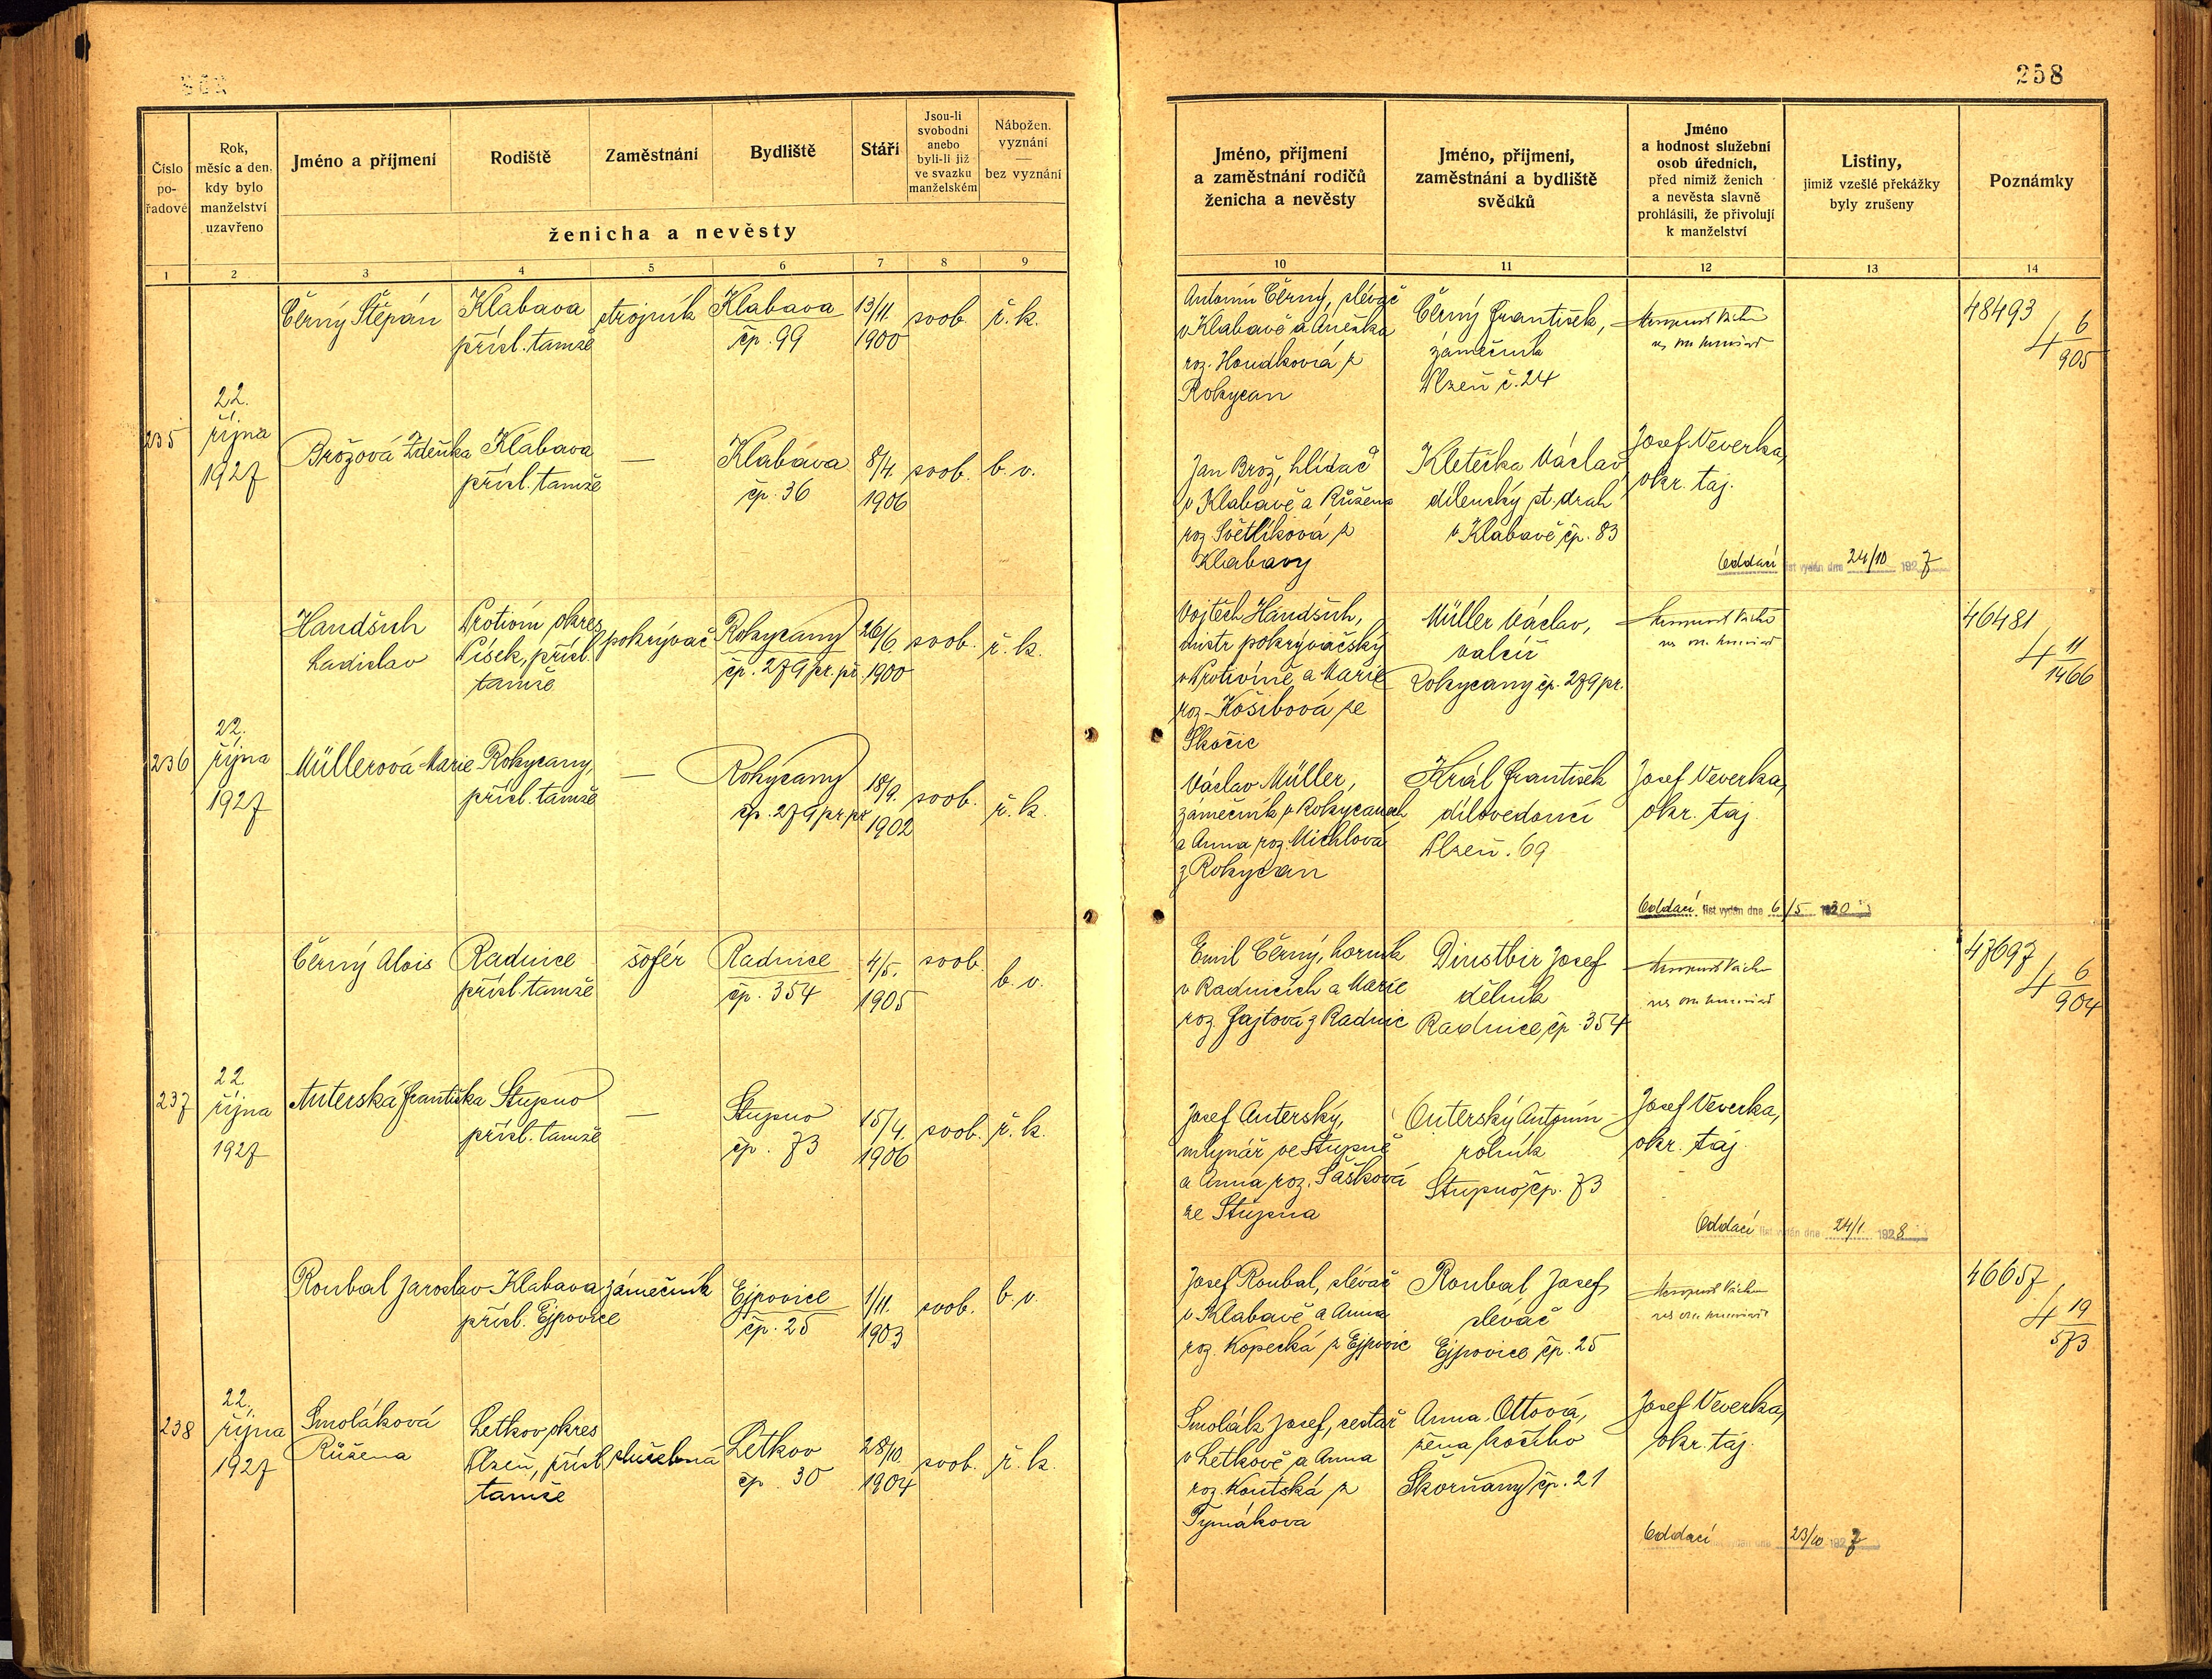 258
Číslo
po-
řadové
Rok,
měsíc a den,
kdy bylo
manželství
uzavřeno
Jméno a příjmení
Rodiště
Zaměstnání
Bydliště
Stáří
Jsou-li
svobodni
anebo
byli-li již
ve svazku
manželském
Nábožen.
vyznání
—
bez vyznání
ženicha a nevěsty
1 2 3 4 5 6 7 8 9
Jméno, příjmení
a zaměstnání rodičů
ženicha a nevěsty
Jméno, příjmení,
zaměstnání a bydliště
svědků
Jméno
a hodnost služební
osob úředních,
před nimiž ženich
a nevěsta slavně
prohlásili, že přivolují
k manželství
Listiny,
jimiž vzešlé překážky
byly zrušeny
Poznámky
10 11 12 13 14
235
22.
října
1927
Černý Štěpán
Klabava
přísl. tamže
strojník
Klabava
čp. 99
13/11.
1900
svob.
ř. k.
Antonín Černý, slévač
v Klabavě a Anežka
roz. Houdková z
Rokycan
Černý František,
zámečník
Plzeň č. 24
48493
4 6
905
Brožová Zdeňka
Klabava
přísl. tamže
—
Klabava
čp. 36
8/4.
1906
svob.
b. v.
Jan Brož, hlídač
v Klabavě a Růžena
roz. Světlíková z
Klabavy
Kletečka Václav
dílenský st. drah
v Klabavě čp. 83
Josef Veverka,
okr. taj.
Oddací list vydán dne 24/10 1927
236
22.
října
1927
Handšuh
Ladislav
Protivín okres
Písek, přísl.
tamže
pokrývač
Rokycany
čp. 279 pr. př.
26/6.
1900
svob.
ř. k.
Vojtěch Handšuh,
mistr pokrývačský
v Protivíně a Marie
roz. Košibová ze
Skočic
Müller Václav,
valcíř
Rokycany čp. 279 pr.
46481
4 11
1466
Müllerová Marie
Rokycany,
přísl. tamže
—
Rokycany
čp. 279 pr. př.
18/9.
1902
svob.
ř. k.
Václav Müller,
zámečník v Rokycanech
a Anna roz. Michlová
z Rokycan
Král František
dílovedoucí
Plzeň. 69
Josef Veverka,
okr. taj.
Oddací list vydán dne 6/5
237
22
října
1927
Černý Alois
Radnice
přísl. tamže
šofér
Radnice
čp. 354
4/5.
1905
svob.
b. v.
Emil Černý, horník
v Radnicích a Marie
roz. Fajtová z Radnic
Dinstbir Josef
dělník
Radnice čp. 354
47697
4 6
904
Auterská Františka
Stupno
přísl. tamže
—
Stupno
čp. 73
15/4.
1906
svob.
ř. k.
Josef Auterský,
mlynář ve Stupně
a Anna roz. Sašková
ze Stupna
Outerský Antonín
rolník
Stupno čp. 73
Josef Veverka,
okr. taj.
Oddací list vydán dne 24/1 1928
238
22.
října
1927
Roubal Jaroslav
Klabava
přísl. Ejpovice
zámečník
Ejpovice
čp. 25
1/11.
1903
svob.
b. v.
Josef Roubal, slévač
v Klabavě a Anna
roz. Kopecká z Ejpovic
Roubal Josef
slévač
Ejpovice čp. 25
46657
4 19
573
Smoláková
Růžena
Letkov okres
Plzeň, přísl.
tamže
služebná
Letkov
čp. 30
28/10
1904
svob.
ř. k.
Smolák Josef, cestář
v Letkově a Anna
roz. Koutská z
Tymákova
Anna Ottová,
žena kočího
Škvrňany čp. 21
Josef Veverka,
okr. taj.
Oddací list vydán dne 23/10 1927